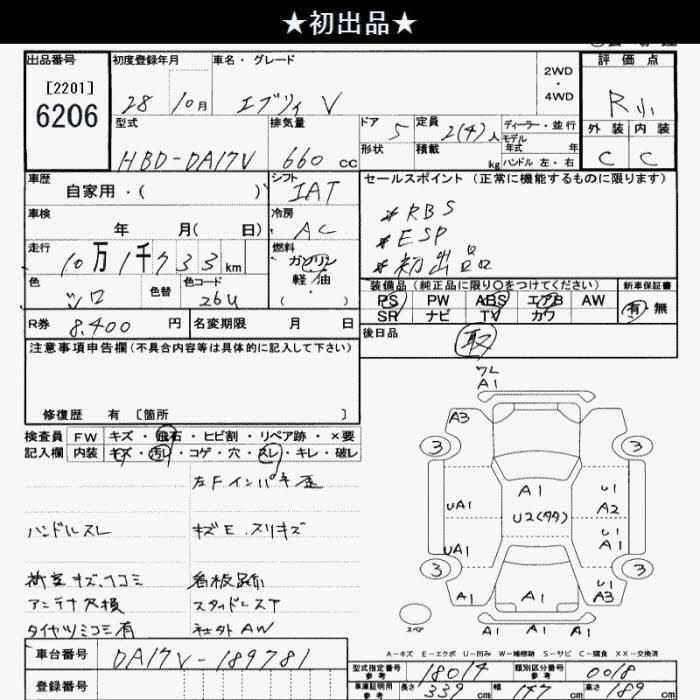 ★初出品★
出品番号 初度登録年月 車名・グレード 2WD ・ 4WD 評価点
[2201]
6206
28 10月 エブリィ V R小
外装 内装
C C
型式 排気量 ドア 定員 ディーラー・並行
HBD-DA17V 660 cc 5 2(4)人 モデル年式 年
形状 積載 kg ハンドル 左・右
車歴 シフト セールスポイント (正常に機能するものに限ります)
自家用・( ) IAT
車検 冷房 *RBS
年 月( 日) AC *ESP
走行 燃料 *初出品
10万1千733km ガソリン
軽油
( ・ )
色 色替 色コード 装備品(純正品に限り○をつけてください) 新車保証書
シロ 26U PS PW ABS エアB AW 有・無
SR ナビ TV カワ
R券 8,400 円 名変期限 月 日 後日品
取
注意事項申告欄(不具合内容等は具体的に記入して下さい)
ワレ
A1
修復歴 有 [箇所 ]
検査員 FW キズ・飛石・ヒビ割・リペア跡・×要
記入欄 内装 キズ・汚レ・コゲ・穴・スレ・キレ・破レ
左Fインパネ歪
ハンドルスレ キズE.スリキズ
荷室キズ、凹コミ 看板跡
アンテナ欠損 スタッドレスT
タイヤツミコミ有 社外AW
A3
3 3
A1 U1
UA1 U2(多数) A2
U1
A1
UA1
3 3
U1
A1 A1 A3
スペア
A1 A1 A1
A-キズ E-エクボ U-凹み W-補修跡 S-サビ C-腐食 XX-交換済
車台番号 DA17V-189781
型式指定番号 参考 18014 類別区分番号 参考 0018
登録番号 車庫証明用 参考 長さ 339 cm 幅 147 cm 高さ 189 cm